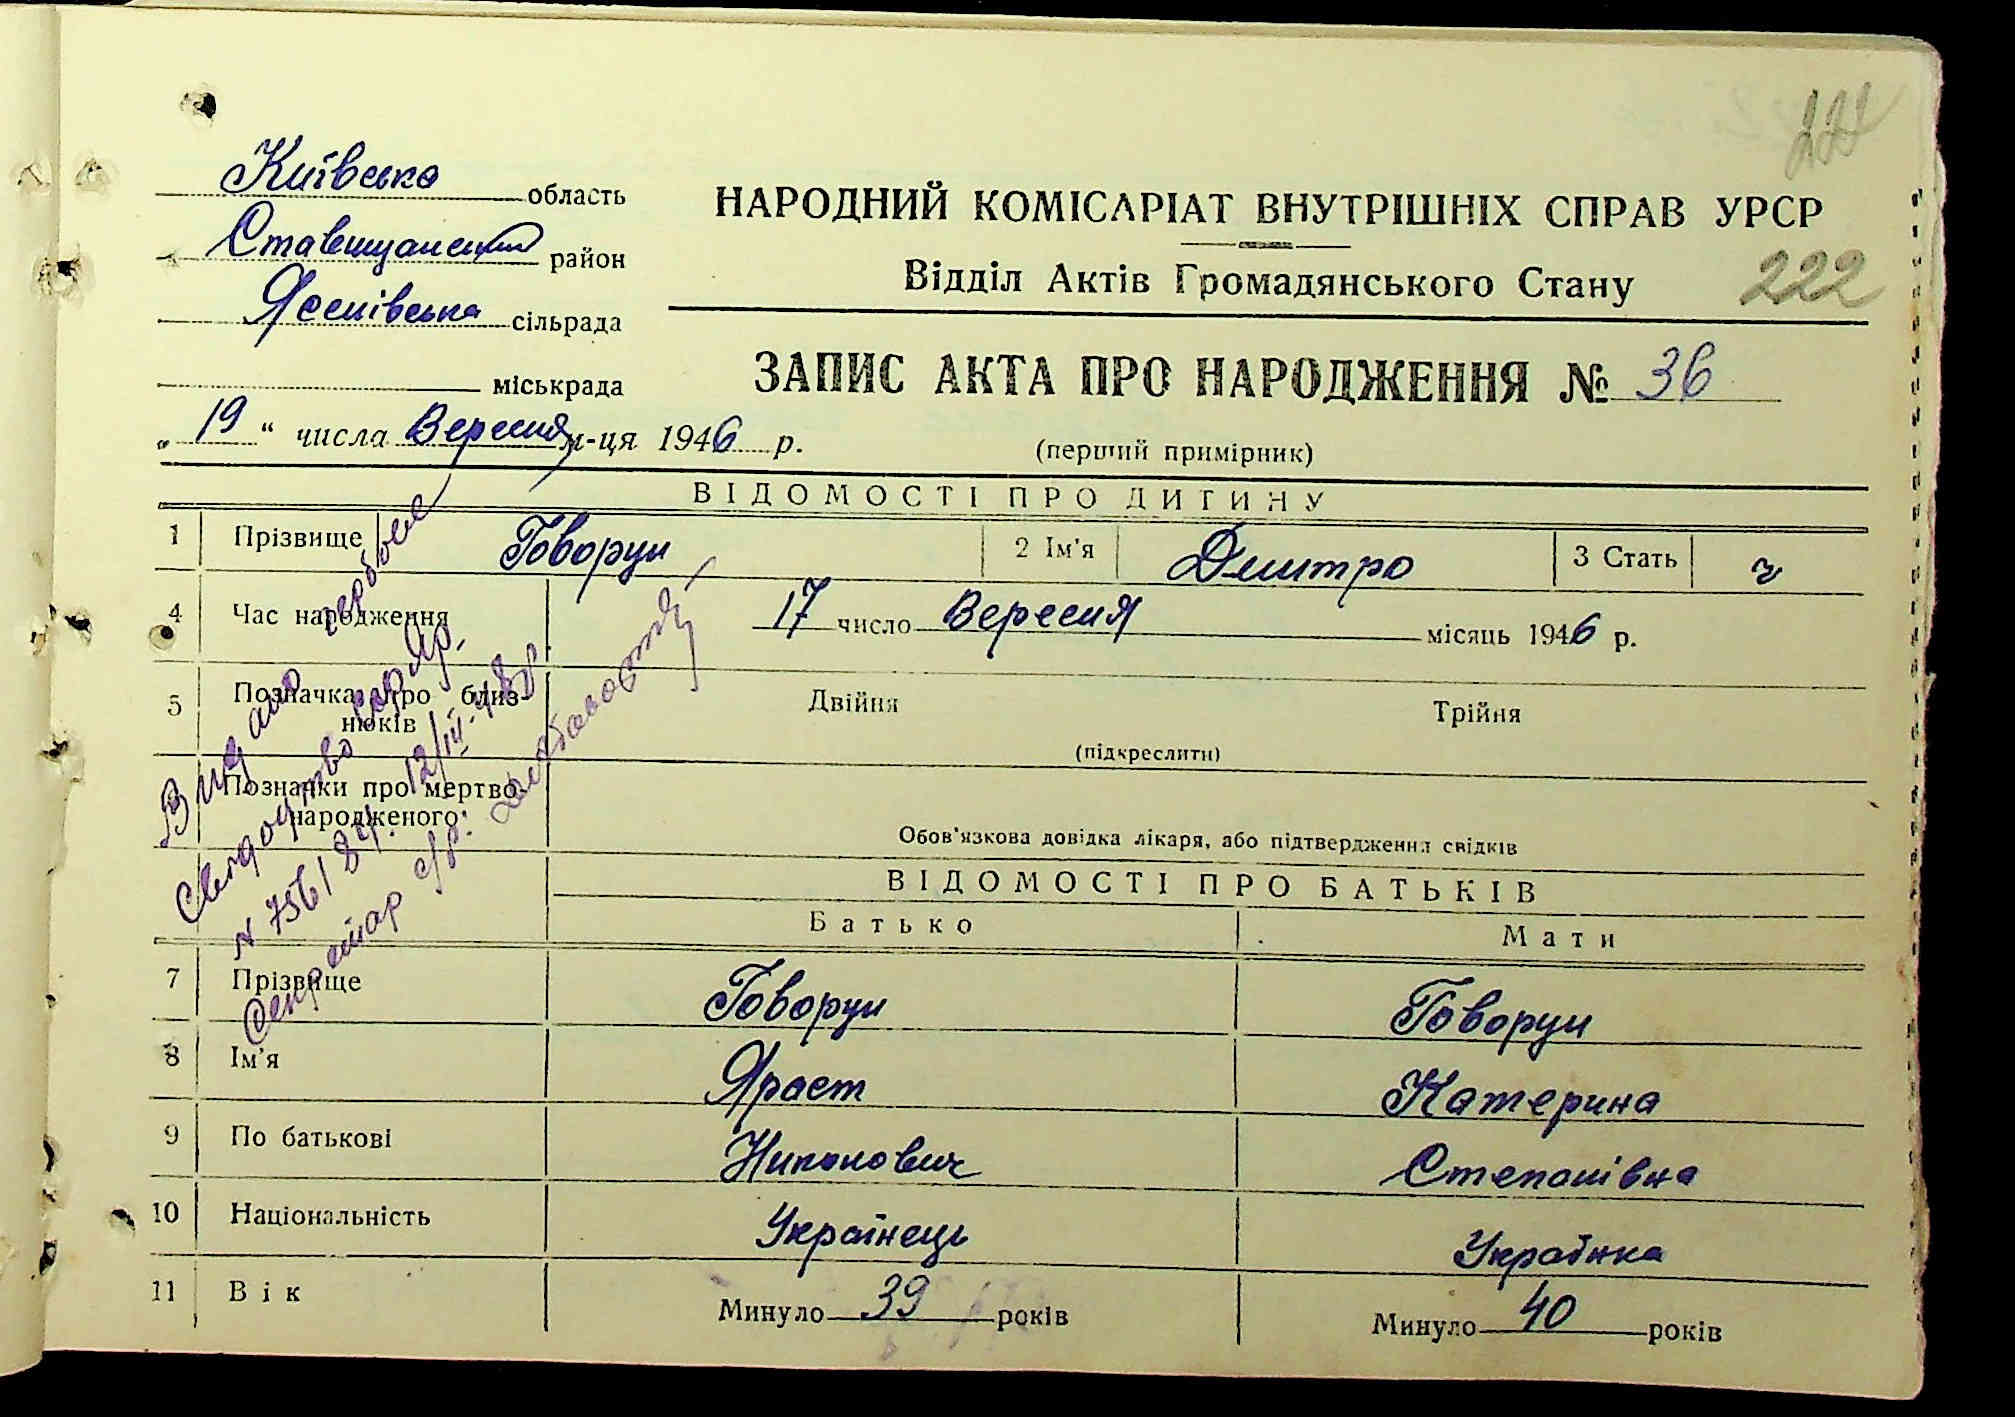 222
Київська область
Ставищанський район
Ясенівська сільрада
міськрада
НАРОДНИЙ КОМІСАРІАТ ВНУТРІШНІХ СПРАВ УРСР
Відділ Актів Громадянського Стану
ЗАПИС АКТА ПРО НАРОДЖЕННЯ № 36
„19“ числа Вересня м-ця 1946 р.
(перший примірник)
ВІДОМОСТІ ПРО ДИТИНУ
1 Прізвище Говорун 2 Ім'я Дмитро 3 Стать ч
4 Час народження 17 число Вересня місяць 1946 р.
5 Позначка про близнюків Двійня Трійня
(підкреслити)
Позначки про мертвонародженого
Обов'язкова довідка лікаря, або підтвердження свідків
Видано
Свідоцтво
12/III-
Секретар с/р:
ВІДОМОСТІ ПРО БАТЬКІВ
Батько Мати
7 Прізвище Говорун Говорун
8 Ім'я Яраст Катерина
9 По батькові Степанівна
10 Національність Українець Українка
11 Вік Минуло 39 років Минуло 40 років